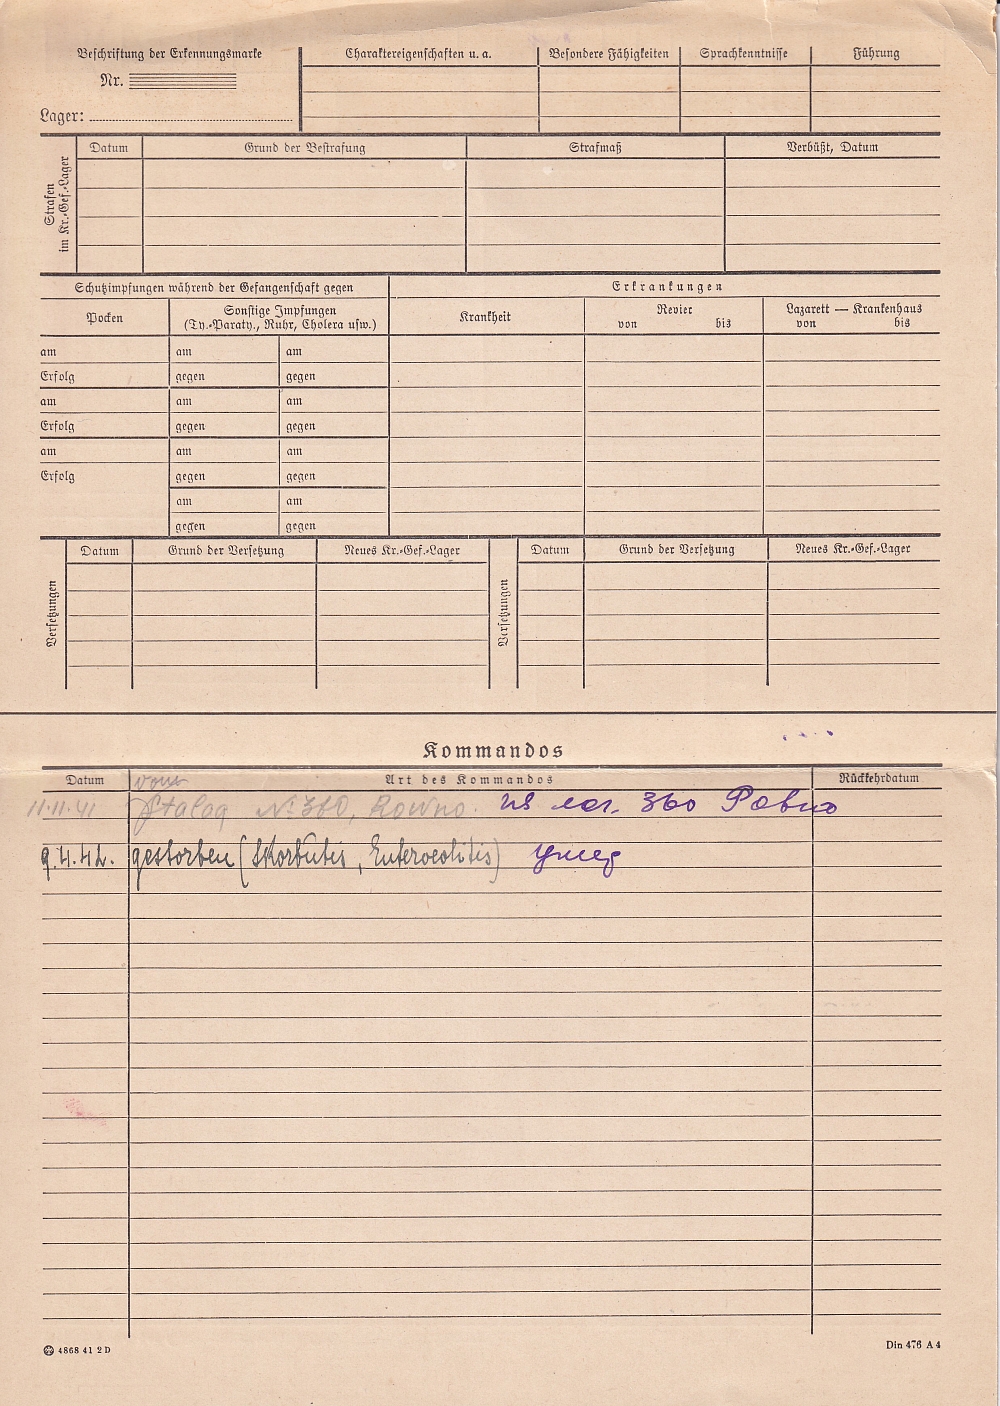 Beschriftung der Erkennungsmarke
Nr.
Lager:
Charaktereigenschaften u. a.
Besondere Fähigkeiten
Sprachkenntnisse
Führung
Strafen
im Kr.-Gef.-Lager
Datum
Grund der Bestrafung
Strafmaß
Verbüßt, Datum
Schutzimpfungen während der Gefangenschaft gegen
Erkrankungen
Pocken
Sonstige Impfungen
(Ty.-Paraty., Ruhr, Cholera usw.)
Krankheit
Revier
von bis
Lazarett — Krankenhaus
von bis
am am am
Erfolg gegen gegen
am am am
Erfolg gegen gegen
am am am
Erfolg gegen gegen
am am
gegen gegen
Versetzungen
Datum Grund der Versetzung Neues Kr.-Gef.-Lager
Versetzungen
Datum Grund der Versetzung Neues Kr.-Gef.-Lager
Kommandos
Datum Art des Kommandos Rückkehrdatum
vom
11.11.41 Stalag № 360, Rowno. из лаг. 360 Ровно
9.4.42. gestorben (Skorbutis, Enterocolitis) умер
4868 41 2 D
Din 476 A 4